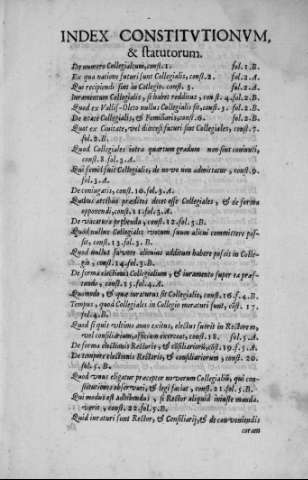 INDEX CONSTITVTIONVM,
& statutorum.
De numero Collegialium, const. 1. fol. 1. B.
Ex qua natione futuri sunt Collegiales, const. 2. fol. 2. A.
Qui recipiendi sint in Collegio. const. 3. fol. 2. A.
Iuramentum Collegialis, si habet redditus, const. 4. fol. 2. B.
Quod ex Nullis collegialis sit, const. 5. fol. 2. B.
De ætate Collegialis, & Familiaris, const. 6. fol. 2. B.
Quot ex Ciuitate, vel diœcesi futuri sint Collegiales, const. 7.
fol. 2. B.
Quod Collegiales intra quartum gradum non sint coniuncti,
const. 8. fol. 3. A.
Qui semel fuit Collegialis, de nouo non admittatur, const. 9.
fol. 3. A.
De coniugatis, const. 10. fol. 3. A.
Quibus artibus præditi decet esse Collegiales, & de forma
opponendi, const. 11. fol. 3. A.
De vacatura, const. 12. fol. 3. B.
Quod nullus Collegialis votum suum alicui committere possit,
const. 13. fol. 3. B.
Quod nullus fauore alicuius additum habere possit in Collegio,
const. 14. fol. 3. B.
De forma electionis Collegialium, & iuramento super ea præstando,
const. 15. fol. 4. A.
Quomodo, & qua iuraturus sit Collegialis, const. 16. f. 4. B.
Tempus, quod Collegiales in Collegio moraturi sunt, cõst. 17.
fol. 4. B.
Quod si quis vltimo anno exitus, electus fuerit in Rectorem,
vel consiliarium, officium exerceat, const. 18. fol. 5. A.
De forma electionis Rectoris, & cõsiliariorũ, cõst. 19. f. 5. A.
De tempore electionis Rectoris, & consiliariorum, const. 20.
fol. 5. B.
Quod vnus eligatur præceptor nouorum Collegialiũ, qui constitutiones
obseruari, & legi faciat, const. 21. fol. 5. B.
Qui modus est adhibendus, si Rector aliquid iniuste mandauerit,
const. 22. fol. 5. B.
Quid iuraturi sunt Rector, & Consiliarij, & de conueniendis
coram